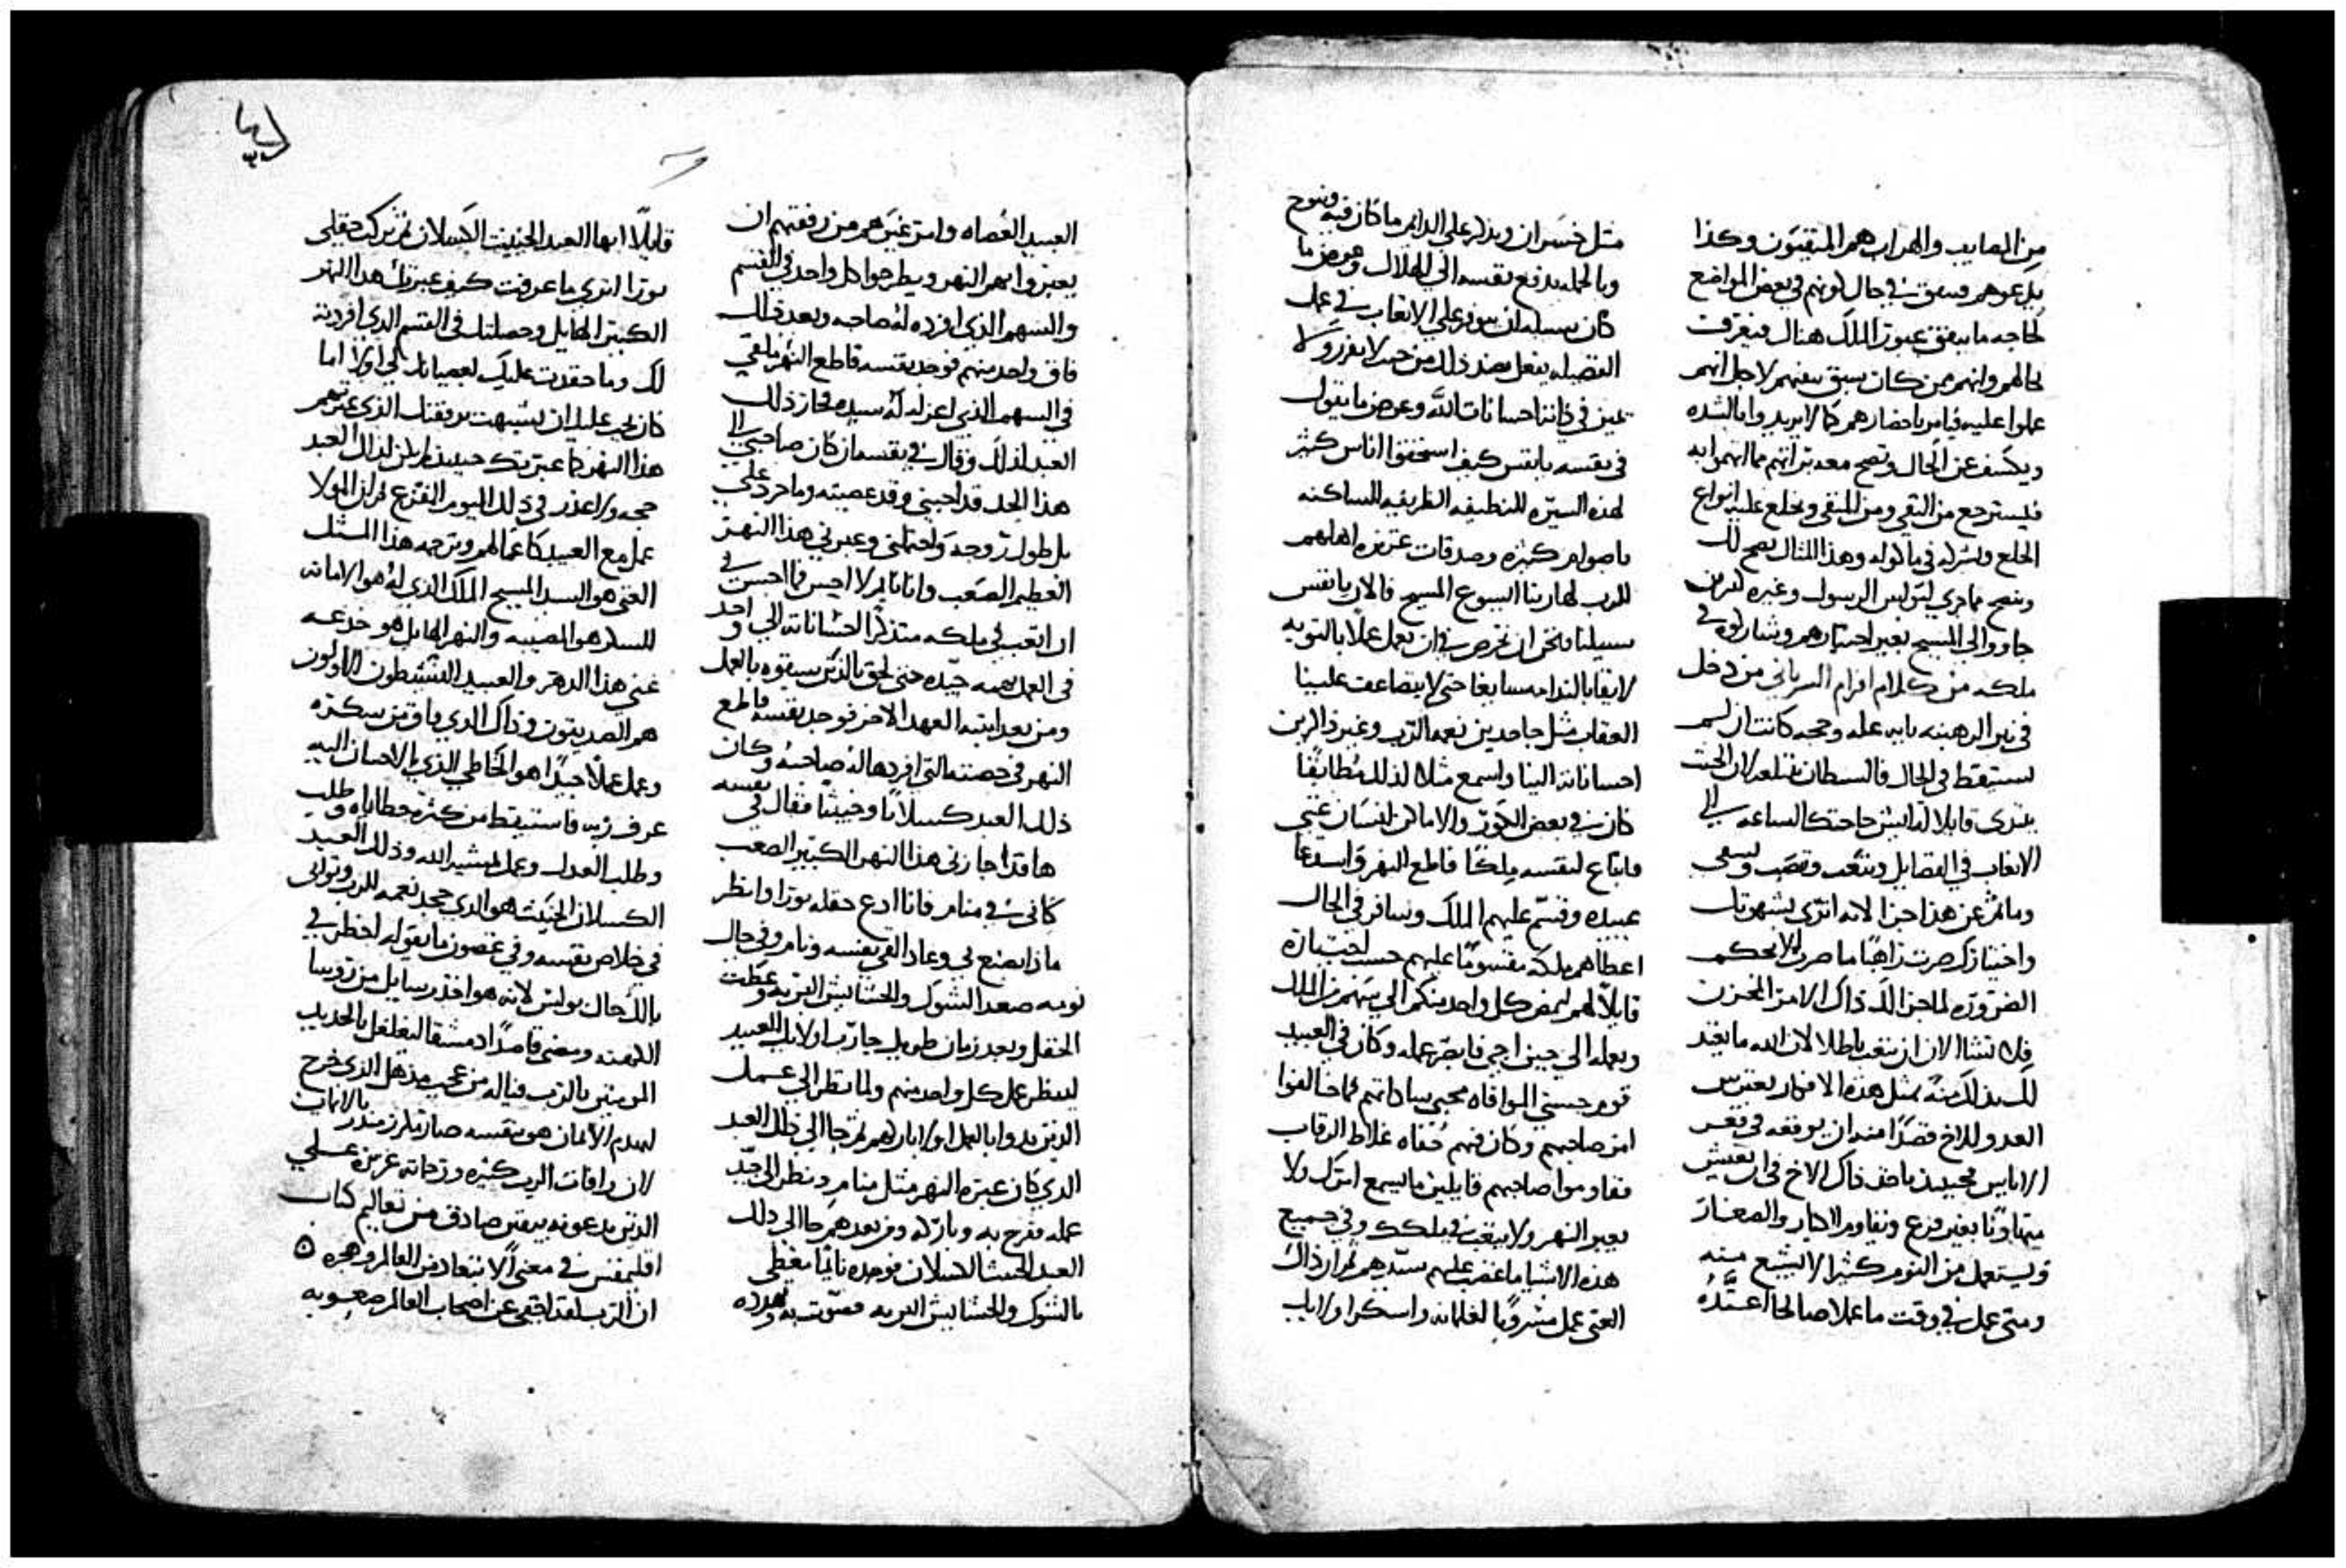 من المصايب والهراب هم المنقيون وكذا
يدعوهم فيتفق في حال كونهم في بعض المواضع
لحاجه ما يتفق عبور الملك هناك فيعرف
بحالهم وانهم ممن كان سبق بيعهم لاجل انهم
عملوا عليه فيامر باحضارهم كما لا يريدوا بالشده
ويكشف عن الحال وتصح معه براتهم مما اتهموا به
فيسترجع من النفي ومن المنقي ويخلع عليه انواع
الخلع ويشركه في ماكوله وهذا المثال يصح لك
ويتضح مما جري لبولس الرسول وغيره الذين
جاووا الي المسيح بغير اختيارهم وشاركوه في
ملكه من كلام افرام السرياني من دخل
في نير الرهبنه بايه عله وحجه كانت ان لم
يستيقظ في الحال فالشيطان يقتلعه لان الخبيث
يبتدي قايلا له ايش حاجتك الساعه الي
الاتعاب في الفضايل وتتعب وتنصب وتسعي
وما ثم عن هذا جزا لانه اتري بشهوتك
واختيارك صرت راهبا ما صرت الا بحكم
الضروره لما حزا لك ذاك الامر المحزن
فلا تشا الان ان تتعب باطلا لان الله ما يعتد
لك بذلك منه بمثل هذه الافكار يعترس
العدو للاخ قصدا منه ان يوقعه في قعر
الاياس فحينيذ ياخذ ذاك الاخ في ان يعيش
متهاونا بغير فزع ويقاوم الكبار والصغار
ويستعمل من النوم كثيرا لا يشبع منه
ومتي عمل في وقت ما عملا صالحا اعتده
مثل خسران ويذكر علي الدايم ما كان فيه وينوح
وبالجمله يدفع نفسه الي الهلاك وعوض ما
كان سبيله ان يتوفر علي الاتعاب في عمل
الفضيله يفعل بضد ذلك من حيث لا يفرز ولا
يميز في ذاتنا احسانات الله وعوض ما يقول
في نفسه يا نفس كيف استحقوا اناس كثير
لهذه السيره النظيفه الظريفه الساكنه
باصوام كثيره وصدقات عزيزه اهلهم
الرب لها ربنا ايسوع المسيح فالان يا نفس
سبيلنا نحن ان نحرص في ان نعمل عملا بالتوبه
لايقا بالندامه سابغا حتي لا يتضاعف علينا
العقاب مثل جاحدين نعمه الرب وغير ذاكرين
احساناته الينا واسمع مثلا لذلك مطابقا
كان في بعض الكور والاماكن انسان غني
فابتاع لنفسه ملكا قاطع النهر واستدعا
عبيده وقسم عليهم الملك وسافر في الحال
اعطاهم ملكه مقسوما عليهم حسب اختياره
قايلا لهم ليمض كل واحد منكم الي سهمه من الملك
ويعمله الي حين اجي فابصر عمله وكان في العبيد
قوم حسني الموافاه محبي ساداتهم فما خالفوا
امر صاحبهم وكان فيهم عصاه غلاظ الرقاب
فقاوموا صاحبهم قايلين ما يسمع امرك ولا
يعبر النهر ولا يتعب في ملكك وفي جميع
هذه الاشيا ما غضب عليهم سيدهم ثم ان ذاك
الغني عمل مشروبا لغلمانه واسكر اوليك
العبيد العصاه وامر غيرهم من رفقتهم ان
يعبروا بهم النهر ويطرحوا كل واحد في القسم
والسهم الذي افرده له صاحبه وبعد ذلك
فاق واحد منهم فوجد نفسه قاطع النهر ملقي
في السهم الذي اعزله له سيده فحار ذلك
العبد لذلك وقال في نفسه ان كان صاحبي الي
هذا الحد قد احبني وقد عصيته وما حرد علي
بل طول روحه واحتملني وعبرني هذا النهر
العظيم الصعب وانا نايم لا احس فما احسن في
ان اتعب في ملكه متذكرا احساناته الي واخذ
في العمل بهمه جيده حتي لحق بالذين سبقوه بالعمل
ومن بعد انتبه العبد الاخر فوجد نفسه قاطع
النهر في حصته التي افردها له صاحبه وكان
ذلك العبد كسلانا وخبيثا فقال في نفسه
ها قد اجازني هذا النهر الكبير الصعب
كاني في منام فانا ادع حقله بورا وانظر
ماذا يصنع بي وعاد القي نفسه ونام وفي حال
نومه صعد الشوك والحشايش البريه وغطت
الحقل وبعد زمان طويل جا رب اوليك العبيد
لينظر عمل كل واحد منهم ولما نظر الي عمل
الذين بدوا بالعمل اولا باركهم ثم جا الي ذلك العبد
الذي كان عبره النهر مثل منام ونظر الي جد
عمله ففرح به وباركه ومن بعدهم جا الي ذلك
العبد الخبيث الكسلان فوجده نايما مغطي
بالشوك والحشايش البريه فصوت به وهدده
قايلا ايها العبد الخبيث الكسلان لم تركت حقلي
بورا اتري ما عرفت كيف عبرتك هذا النهر
الكبير الهايل وحصلتك في القسم الذي افردته
لك وما حقدت عليك لعصيانك لي اولا اما
كان يجب عليك ان تشبهت برفقتك الذي عبرتهم
هذا النهر كما عبرتك حينيذ لم يكن لذلك العبد
حجه ولا عذر في ذلك اليوم المفزع ثم ان المولا
عمل مع العبيد كاعمالهم وترجمه هذا المثل
الغني هو السيد المسيح الملك الذي له هو الامانه
المسكر هو المصيبه والنهر الهايل هو خدعه
غني هذا الدهر والعبيد النشيطون الاولون
هم الصديقون وذاك الذي فاق من سكره
وعمل عملا جيدا هو الخاطي الذي بالاحسان اليه
عرف ربه فاستيقظ من كثره خطاياه وطلب
وطلب العدل وعمل لمشيه الله وذلك العبد
الكسلان الخبيث هو الذي جحد نعمه الرب وتواني
في خلاص نفسه وفي غضون ما يقوله احظر في
بالك حال بولس لانه هو اخذ رسايل من روسا
الكهنه ومضي قاصدا دمشق ليغلغل بالحديد
المومنين بالرب فياله من عجب مذهل الذي خرج
ليهدم الايمان هو نفسه صار تلمذ منذر بالايمان
لان رافات الرب كثيره ورحماته غزيره علي
الذين يدعونه بيقين صادق من تعاليم كتاب
اقليمقس في معني الابتعاد من العالم وهجره ٥
ان الرب لقد اخفي عن اصحاب العالم صعوبه